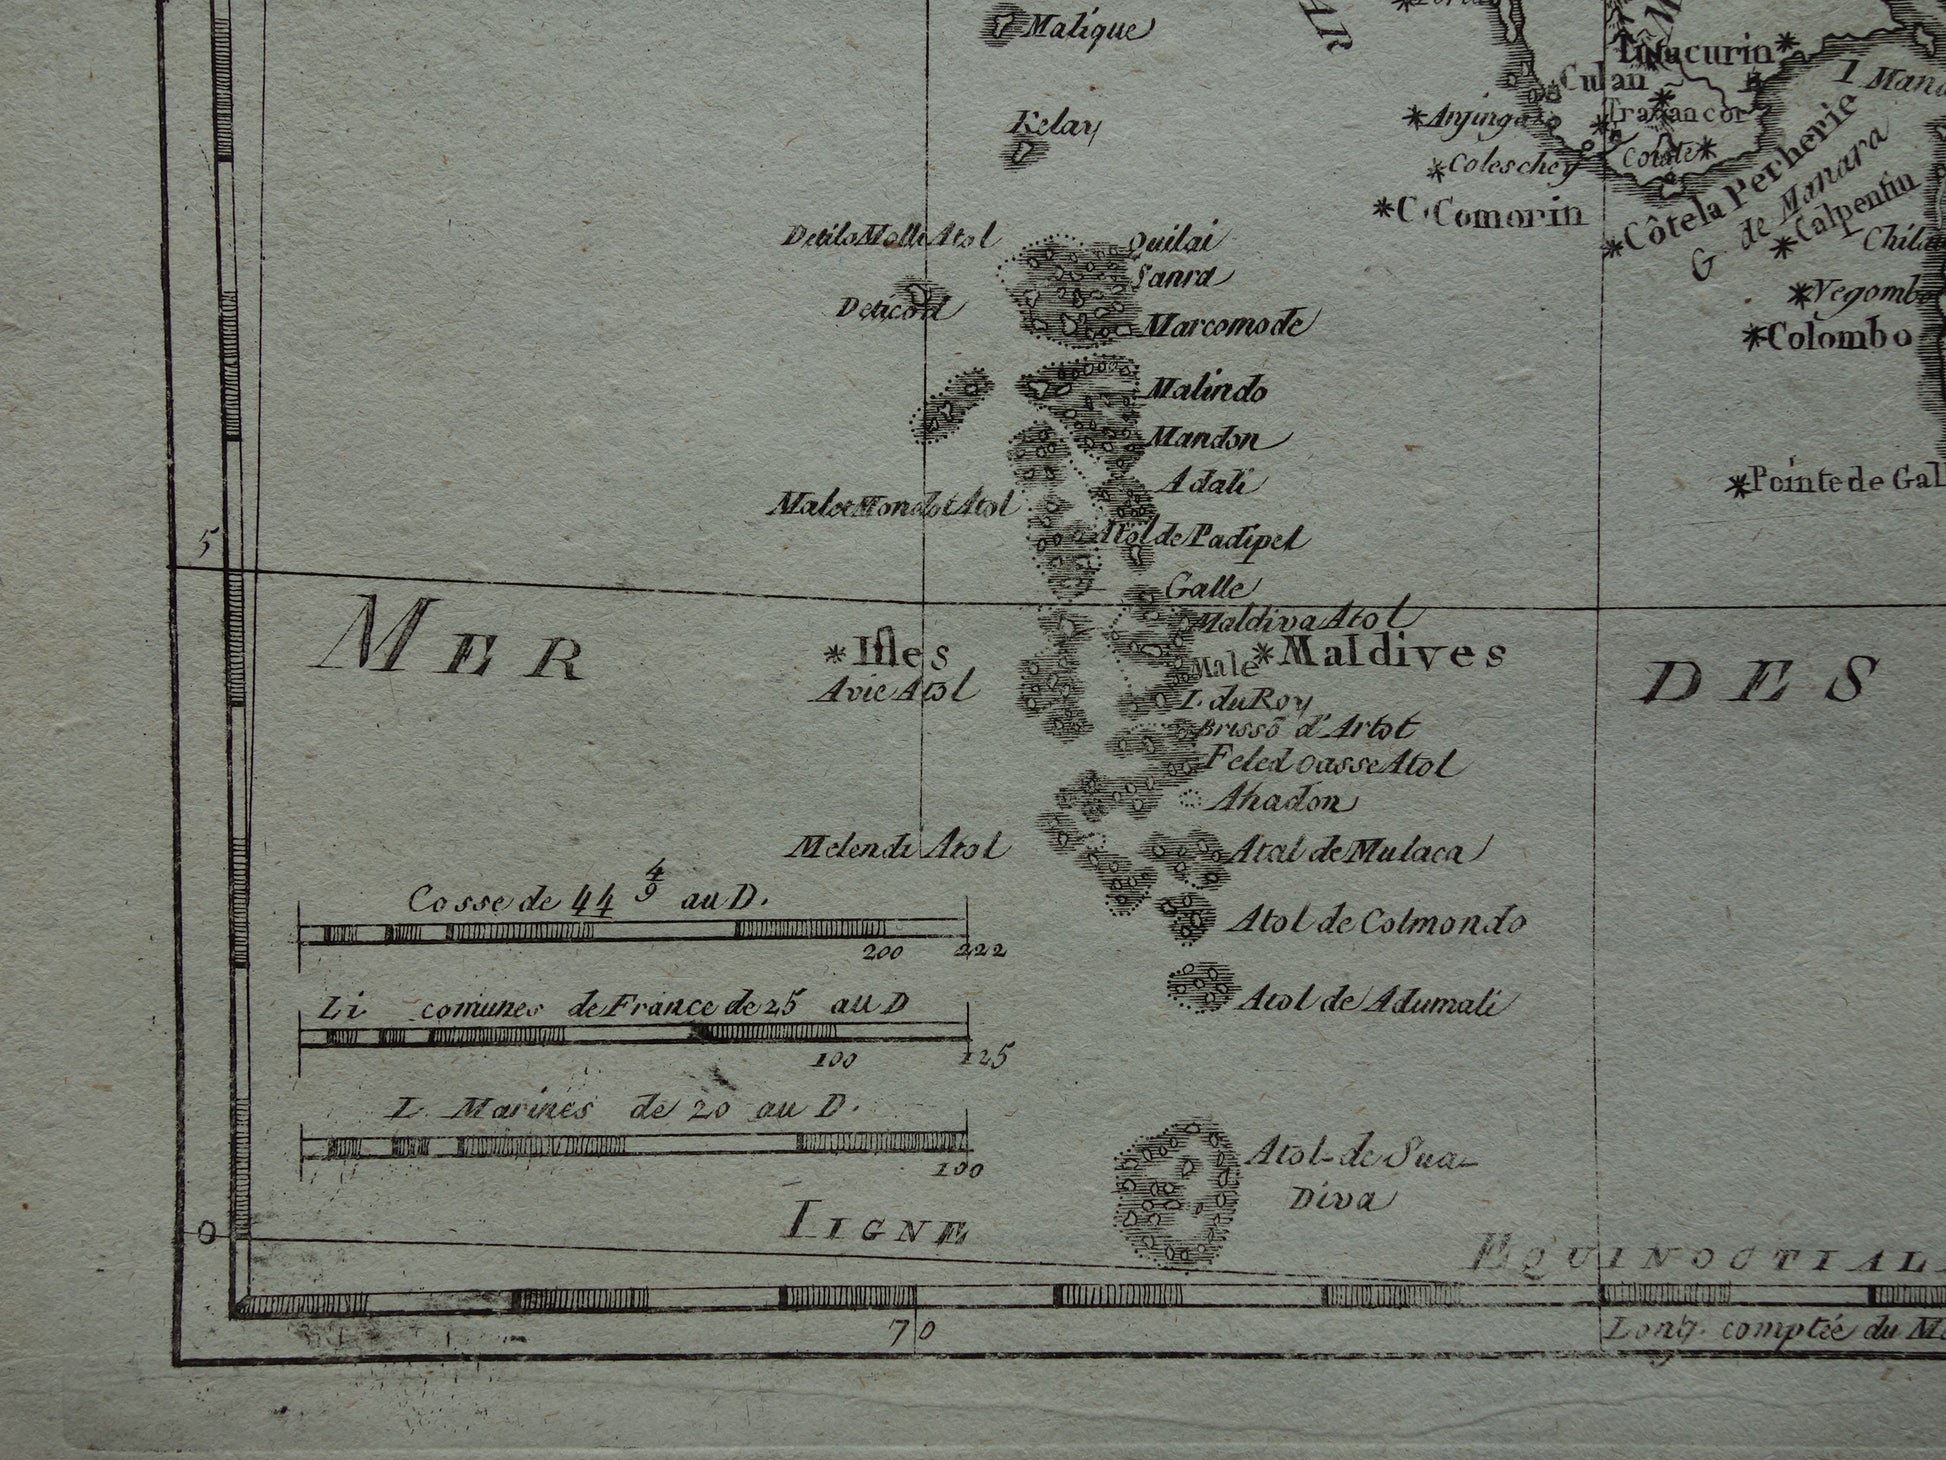 Malique
Kelay
Tutucurin
Culan
Anjinga
Travancor
Coleschey
C. Comorin
Côte la Perherie
G. de Manara
Calpentin
I Mana
Chila
Negombo
Colombo
Pointe de Gal
Quilai
Sanra
Marcomode
Malindo
Mandon
Adali
Atol de Padipel
Galle
Maldiva Atol
Maldives
Male
I. du Roy
Feled oasse Atol
Ahadon
Atal de Mulaca
Atol de Colmondo
Atol de Adumali
Atol-de Sua-
Diva
5
MER
DES
Isles
Avie Atol
Melendi Atol
Cosse de 44 4/9 au D.
200 222
Li comunes de France de 25 au D
100 125
L. Marines de 20 au D.
100
0
LIGNE
EQUINOCTIAL
70
Long. comptée du M